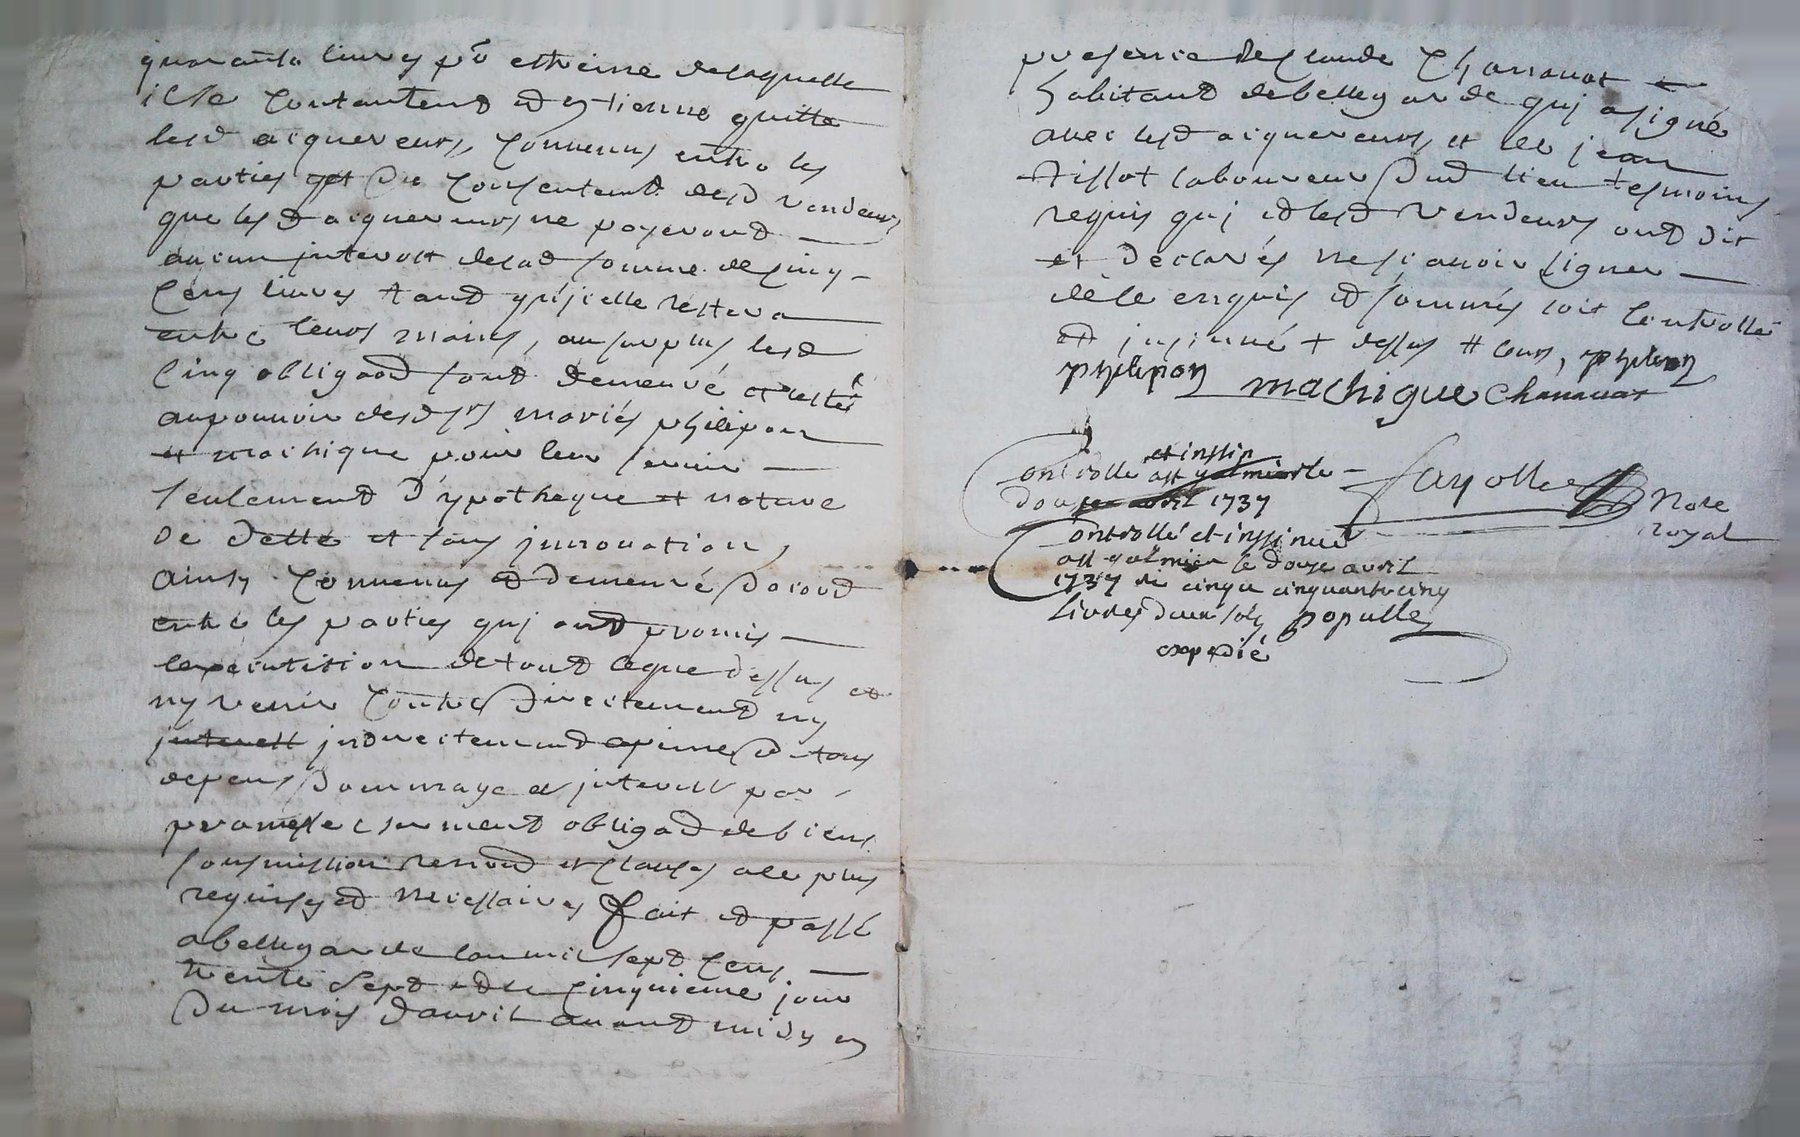 quarante livres pr estreine de laquelle
ils se contantent et en tienne quitte
lesd acquereurs, convenus entre les
parties et du consentemt desd vendeurs
que lesd acquereurs ne payeront
aucun interest de lad somme de cinq
cens livres tant qu'icelle restera
entre leurs mains, au surplus lesd
cinq obligaōn sont demeuré et resté
au pouvoir desd srs mariés philipon
et machique pour leur servir
seulement d'ypotheque et nature
de dette et sans innovation,
ainsy convenus et demeuré dacord
entre les parties qui ont promis
lexecutition de tout ceque dessus et
ny venir contre directement ny
interest indirectement apeine de tous
depens dommage et interest par
promesse serment obligaōn de biens
sousmission renonō et clauses ale plus
requises et necessaires fait et passé
a bellegarde lan mil sept cens
trente sept et le cinquieme jour
du mois davril avant midy en
presence de Claude Chanavat
habitant de bellegarde qui a signé
avec lesd acquereurs et de jean
tissot laboureur dud lieu tesmoins
requis qui et lesd vendeurs ont dit
et declarés ne sçavoir signer
de ce enquis et sommés soit controllé
et insinué + dessus # cens, philipon
philipon machique Chanavat
et insin
Controllé a st galmier le
douze avril 1737
fayolle Nore
royal
Controllé et insinué
a st galmier le douze avril
1737 cinquante cinq
livres sols populle
expedié